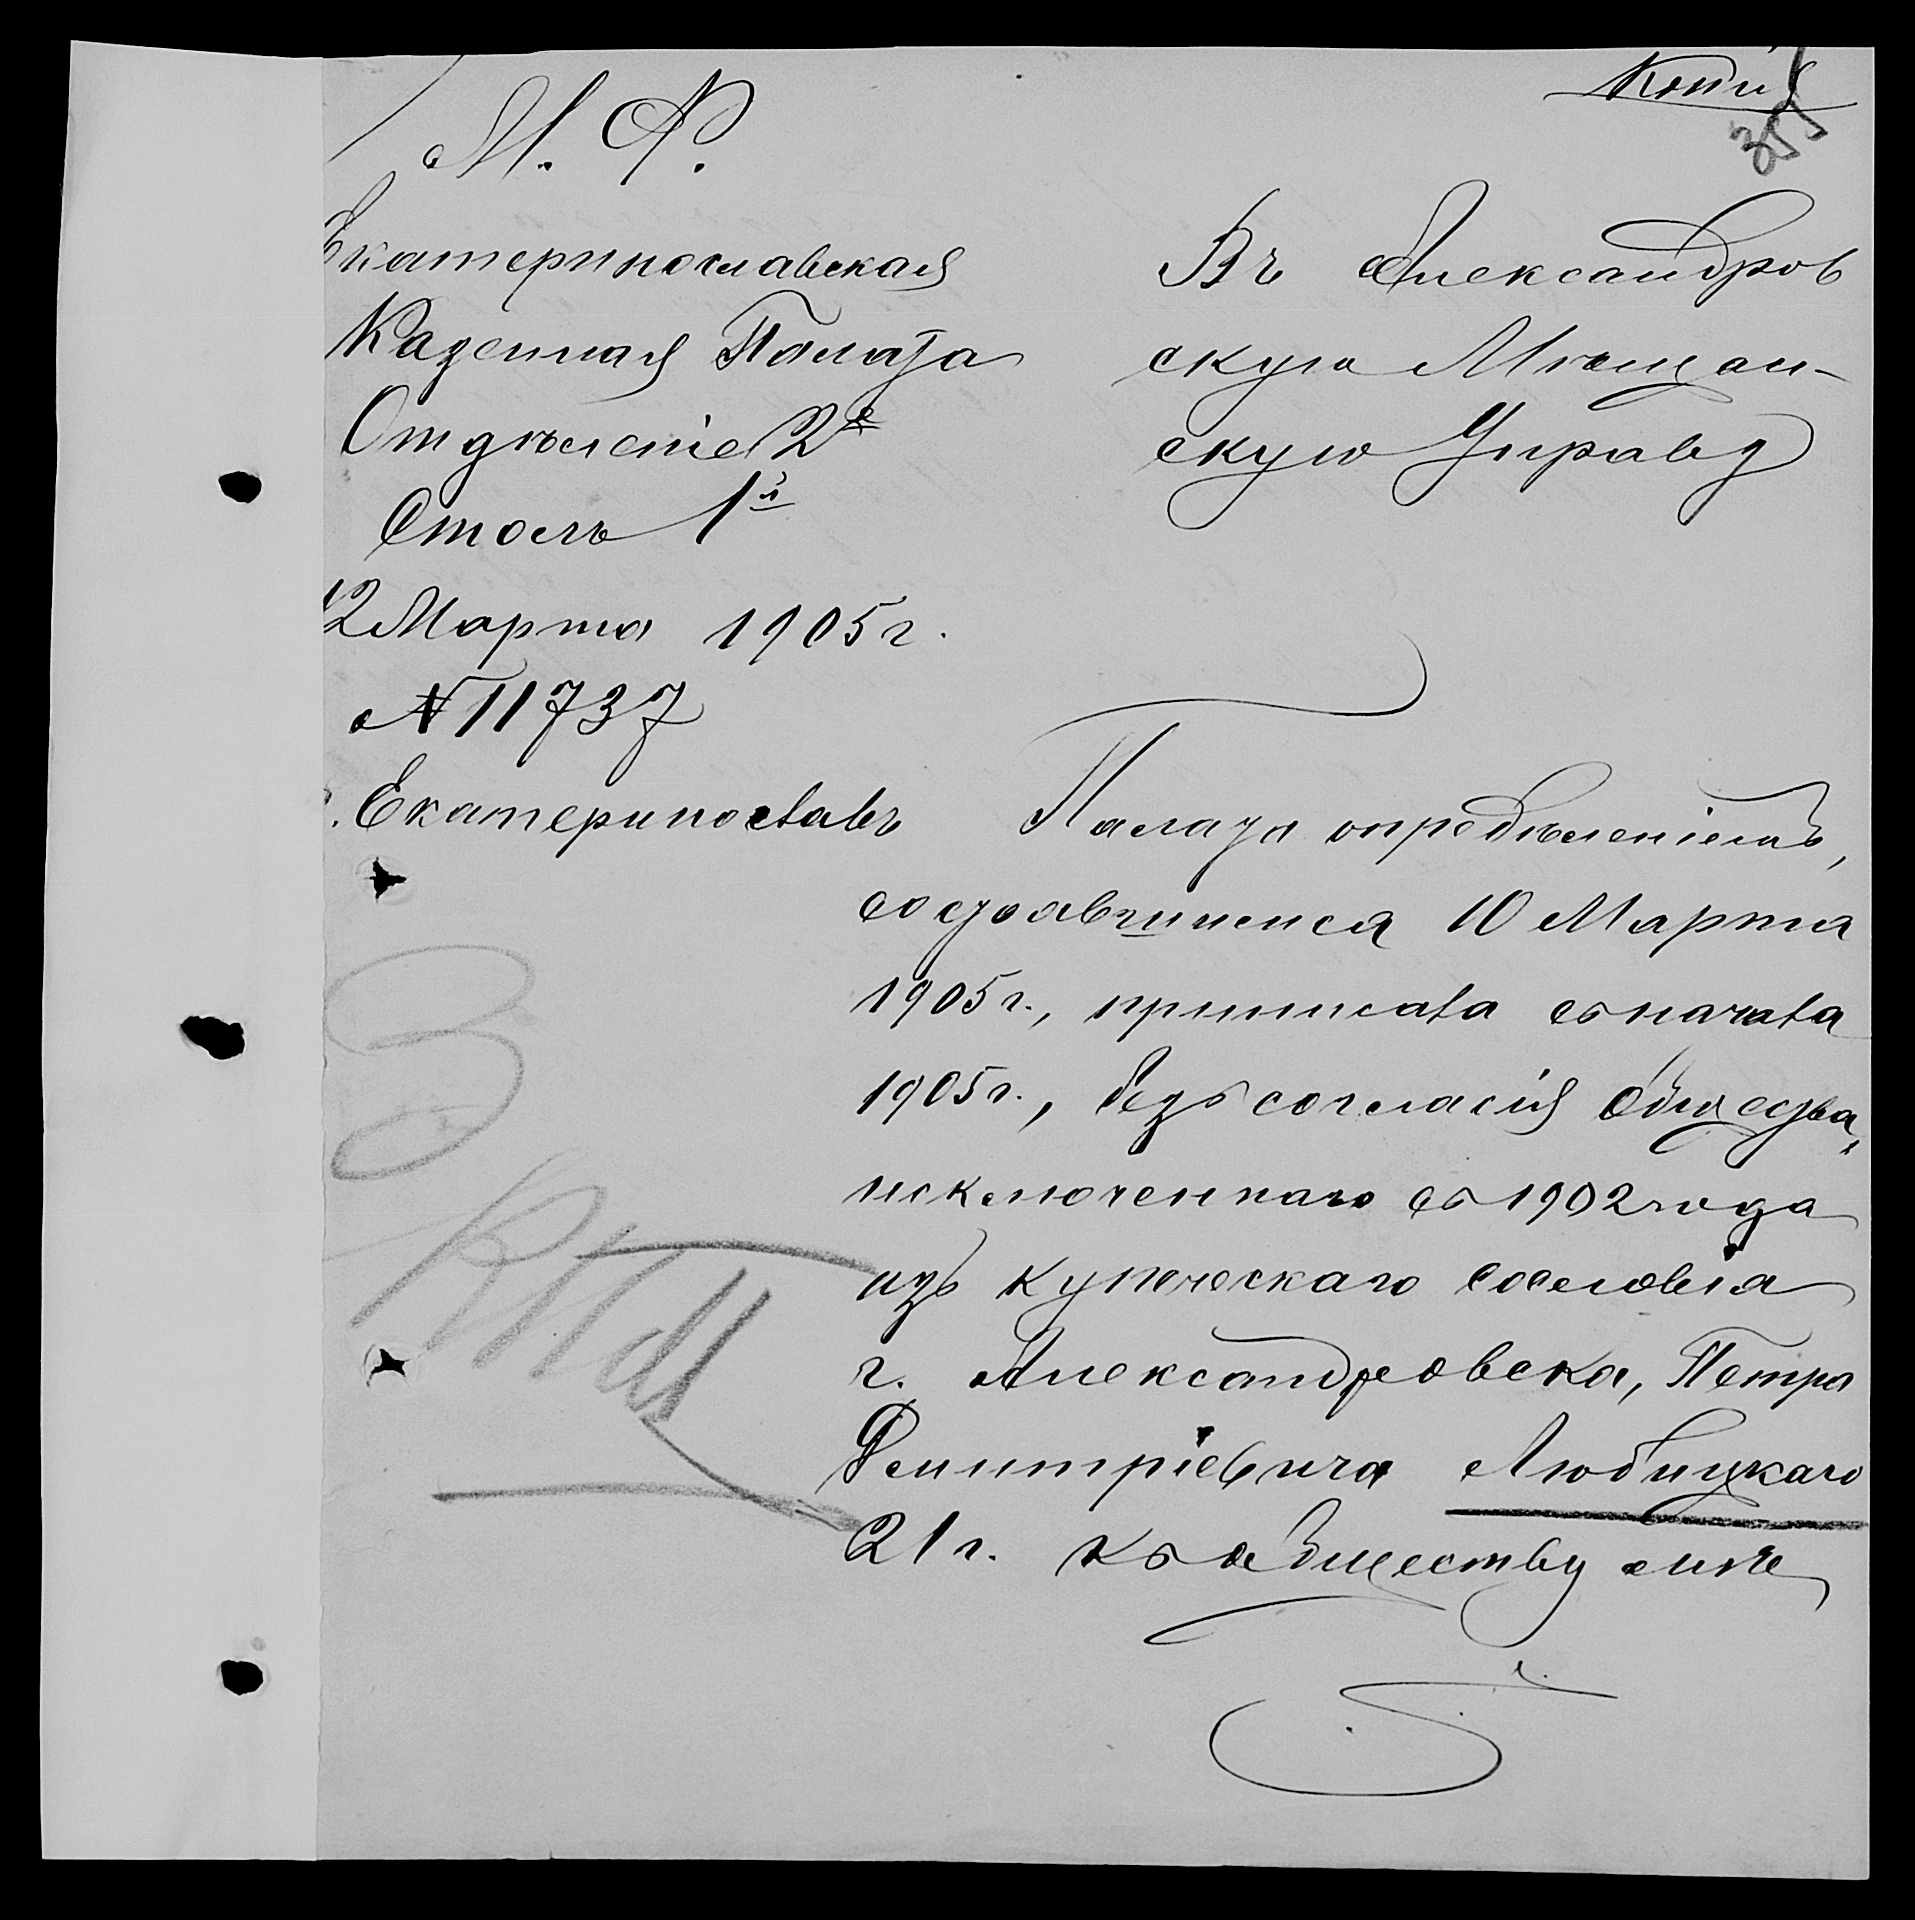 Копія
355
М. Ф.
Екатеринославская
Казенная Палата
Отдѣленіе 2е
Столъ 1й
12 Марта 1905 г.
№ 11737
г. Екатеринославъ
Въ Александров
скую Мѣщан-
скую Управу
Палата опредѣленіемъ,
состоявшимся 10 Марта
1905 г., приписала съ начала
1905 г., безъ согласія Общества,
исключеннаго съ 1902 года
изъ купеческаго сословія
г. Александровска, Петра
Дмитріевича Любицкаго
21 г. къ обществу мѣ